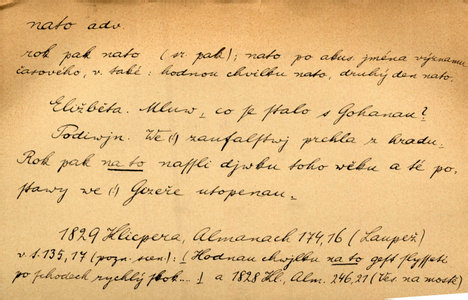 nato adv.
rok pak nato (sr. pak); nato po akus. jména významu
časového, v. také: hodnou chvilku nato, druhý den nato.
Elžběta. Mluw, co se stalo s Johanau?
Podiwjn. We (!) zaufalstwj prchla z hradu.
Rok pak na to nassli djwku toho wěku a té po-
stawy we (!) Gizeře utopenau.
1829 Klicpera, Almanach 174,16 (Laupež)
v. s. 135,17 (pozn. scen): (Hodnau chwjlku na to gest slysseti
po schodech rychlý skok...) a 1828 Kl. Alm. 246,21 (Ves. na most)